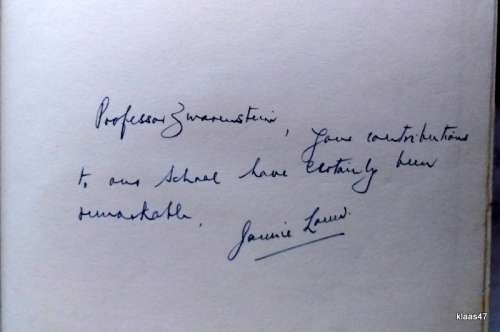 Professor Zwarenstein, your contributions
to our school have certainly been
remarkable.
Jannie Louw.
klaas47